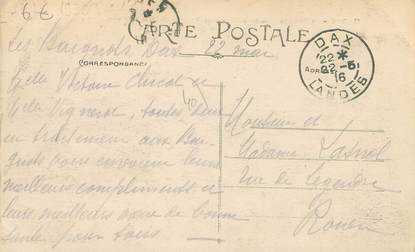 6€
CARTE POSTALE
Les Baignots Dax 22 mai
CORRESPONDANCE
DAX
22 - 5
16
LANDES
Melle Victoire et
Melle Vigneron, toutes deux
en traitement aux Bai-
gnots vous envoient leurs
meilleurs compliments et
leurs meilleurs vœux de bonne
santé pour tous
40
Monsieur et
Madame
rue de
Rouen